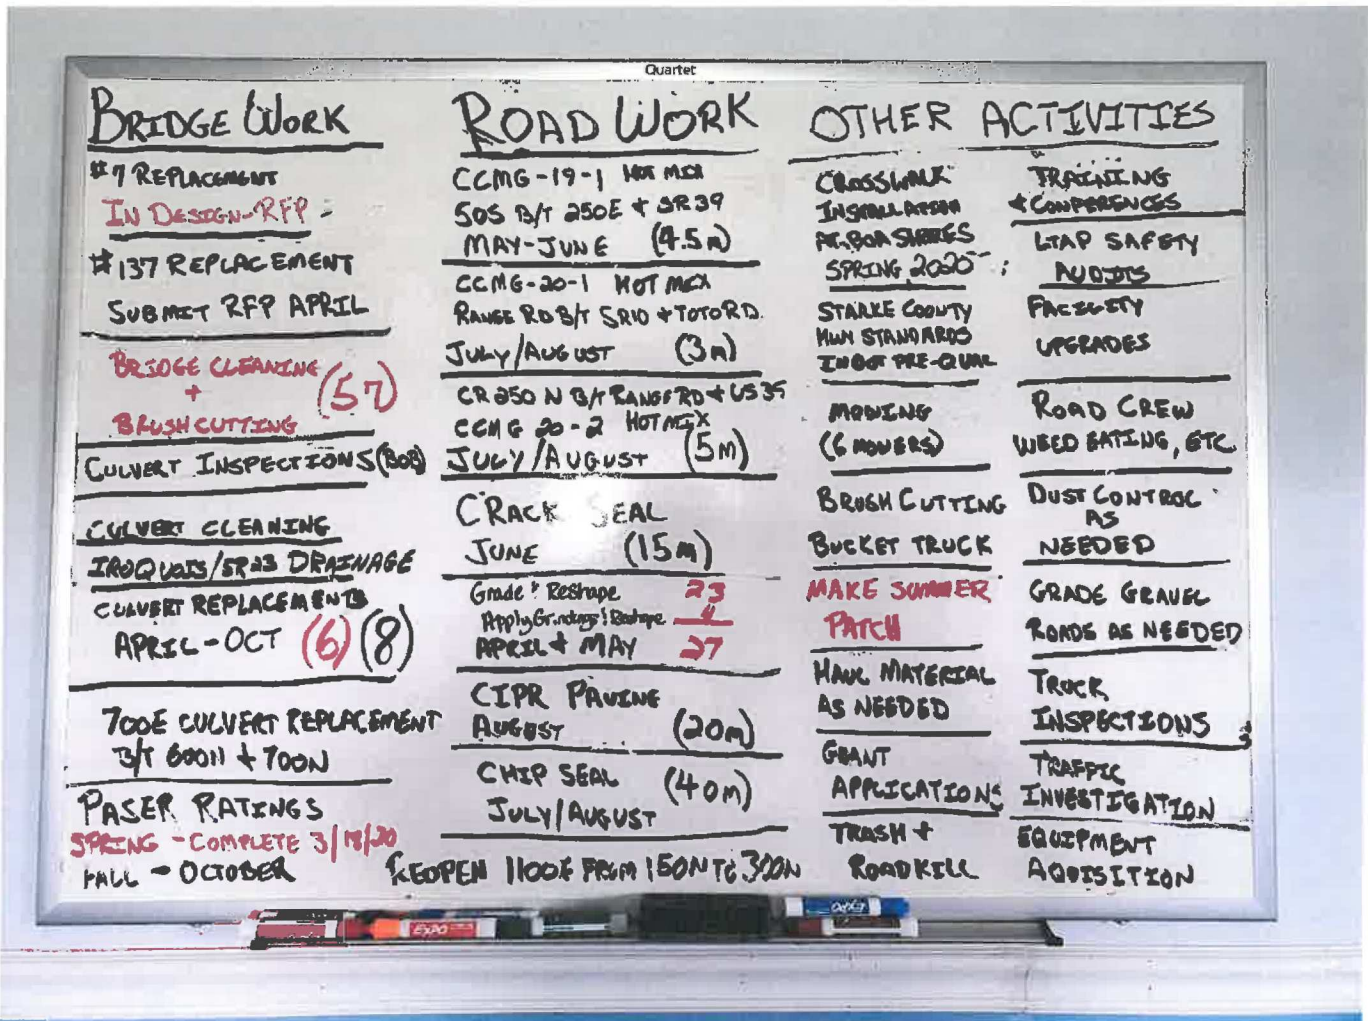 Quartet
BRIDGE WORK
#7 REPLACEMENT
IN DESIGN-RFP
#137 REPLACEMENT
SUBMIT RFP APRIL
BRIDGE CLEANING
+
BRUSH CUTTING
(57)
CULVERT INSPECTIONS (BOB)
CULVERT CLEANING
IROQUOIS/SR23 DRAINAGE
CULVERT REPLACEMENTS
APRIL - OCT (6) (8)
700E CULVERT REPLACEMENT
B/T 600N + 700N
PASER RATINGS
SPRING - COMPLETE 3/18/20
FALL - OCTOBER
ROAD WORK
CCMG-19-1 HOT MIX
50S B/T 250E + SR39
MAY-JUNE (4.5m)
CCMG-20-1 HOT MIX
RANGE RD B/T SR10 + TOTO RD.
JULY/AUGUST (3m)
CR 250 N B/T RANGE RD + US 35
CCMG 20-2 HOT MIX
JULY/AUGUST (5m)
CRACK SEAL
JUNE (15m)
Grade & Reshape 23
Apply Grindings & Reshape 4
APRIL + MAY 27
CIPR PAVING
AUGUST (20m)
CHIP SEAL (40m)
JULY/AUGUST
REOPEN 1100E FROM 150N TO 300N
OTHER ACTIVITIES
CROSSWALK
INSTALLATION
AT BOA SHORES
SPRING 2020
STARKE COUNTY
HWY STANDARDS
INDOT PRE-QUAL
MOWING
(6 MOWERS)
BRUSH CUTTING
BUCKET TRUCK
MAKE SUMMER
PATCH
HAUL MATERIAL
AS NEEDED
GRANT
APPLICATIONS
TRASH +
ROADKILL
TRAINING
+ CONFERENCES
LTAP SAFETY
AUDITS
FACILITY
UPGRADES
ROAD CREW
WEED EATING, ETC.
DUST CONTROL
AS
NEEDED
GRADE GRAVEL
ROADS AS NEEDED
TRUCK
INSPECTIONS
TRAFFIC
INVESTIGATION
EQUIPMENT
AQUISITION
EXPO
EXPO